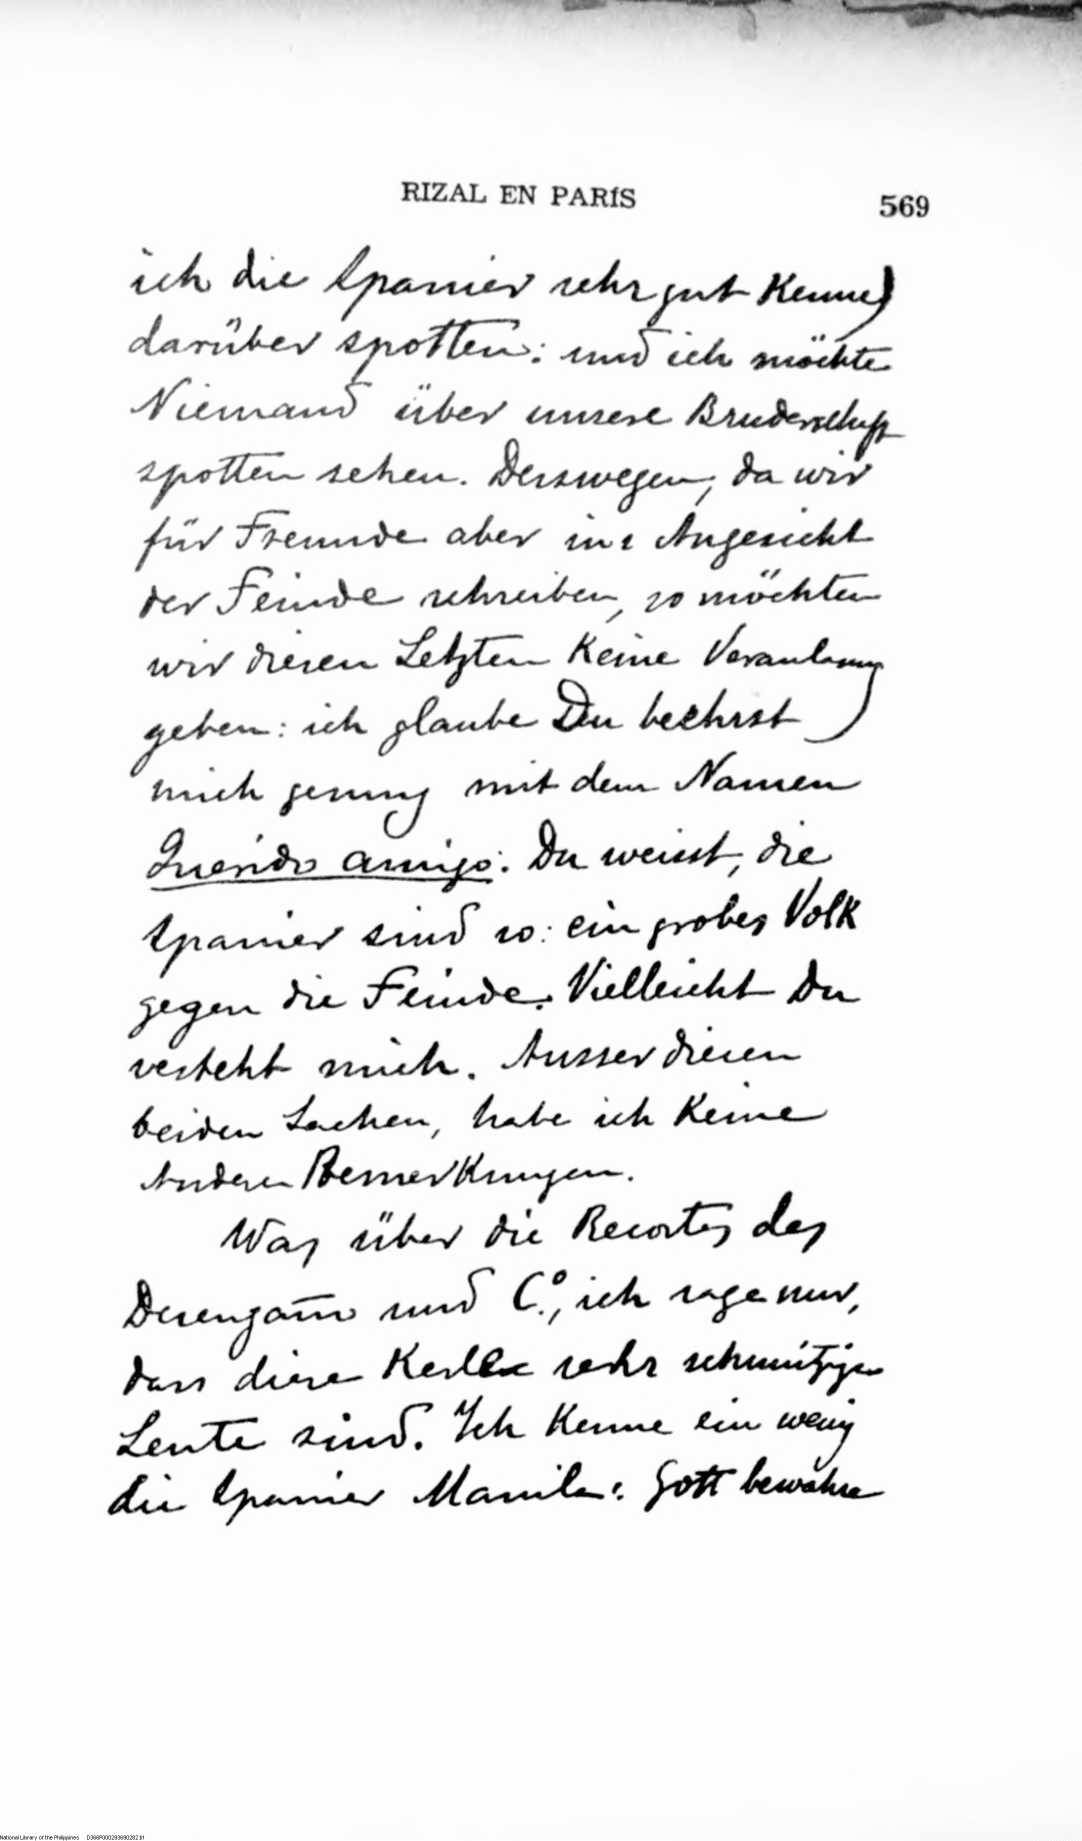 RIZAL EN PARÍS 569
ich die Spanier sehr gut Kenne)
darüber spotten: und ich möchte
Niemand über unsere Bruderschaft
spotten sehen. Derswegen, da wir
für Freunde aber ins Angesicht
der Feinde schreiben, so möchten
wir diesen Letzten Keine Veranlasung
geben: ich glaube Du beehrst
mich genung mit dem Namen
Querido amigo: Du weisst, die
Spanier sind so: ein grobes Volk
gegen die Feinde. Vielleicht Du
versteht mich. Ausser diesen
beiden Sachen, habe ich Keine
Anderen Bemerkungen.
Was über die Recortes des
Desengaño und Cº., ich sage nur,
dass diese Kerle sehr schmützige
Leute sind. Ich Kenne ein wenig
die Spanier Manila: Gott bewahre
National Library of the Philippines